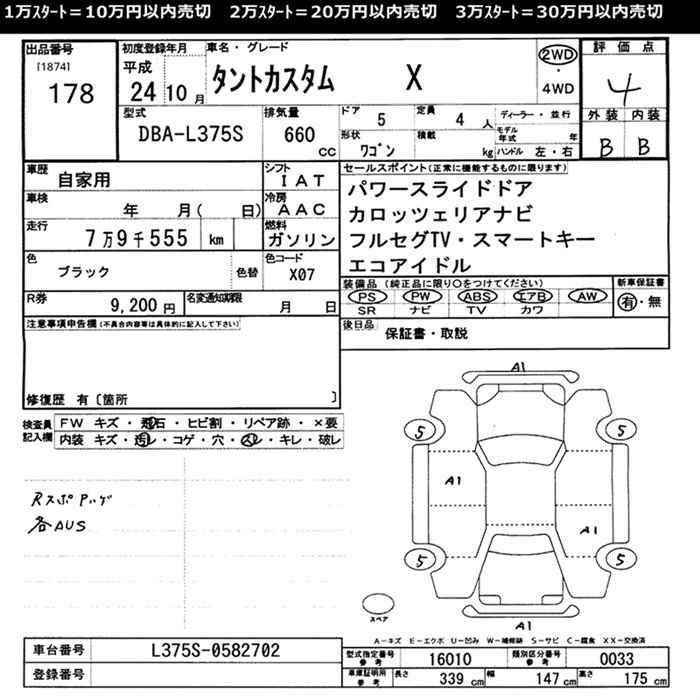 1万ｽﾀｰﾄ＝10万円以内売切　2万ｽﾀｰﾄ＝20万円以内売切　3万ｽﾀｰﾄ＝30万円以内売切
出品番号 [1874] 178
初度登録年月 平成 24 10 月
車名・グレード タントカスタム X
2WD ・ 4WD
評価点 4
外装 内装
B B
型式 DBA-L375S
排気量 660 CC
ドア 5 定員 4 人
形状 ワゴン 積載 kg
ディーラー・並行
モデル年式 年
ハンドル 左・右
車歴 自家用
シフト IAT
車検 年 月( 日)
冷房 AAC
走行 7万9千555 km
燃料 ガソリン
色 ブラック 色替
色コード X07
R券 9,200円
名変通知期限 月 日
セールスポイント(正常に機能するものに限ります)
パワースライドドア
カロッツェリアナビ
フルセグTV・スマートキー
エコアイドル
装備品(純正品に限り○をつけてください)
PS PW ABS エアB AW
SR ナビ TV カワ
新車保証書 有・無
後日品 保証書・取説
注意事項申告欄(不具合内容等は具体的に記入して下さい)
修復歴 有〔箇所 〕
検査員記入欄
FW キズ・飛石・ヒビ割・リペア跡・×要
内装 キズ・汚レ・コゲ・穴・スレ・キレ・破レ
各AUS
A1
5 5
A1
A1
5 5
スペア
A1
A－キズ E－エクボ U－凹み W－補修跡 S－サビ C－腐食 XX－交換済
車台番号 L375S-0582702
登録番号
型式指定番号 参考 16010
類別区分番号 参考 0033
車庫証明用 参考 長さ 339 cm 幅 147 cm 高さ 175 cm